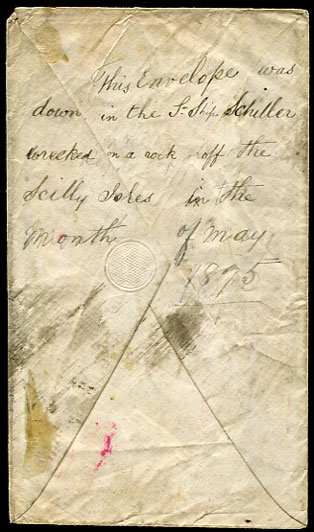 This Envelope was
down in the S. Ship Schiller
wrecked on a rock off the
Scilly Isles in the
month of may
1875